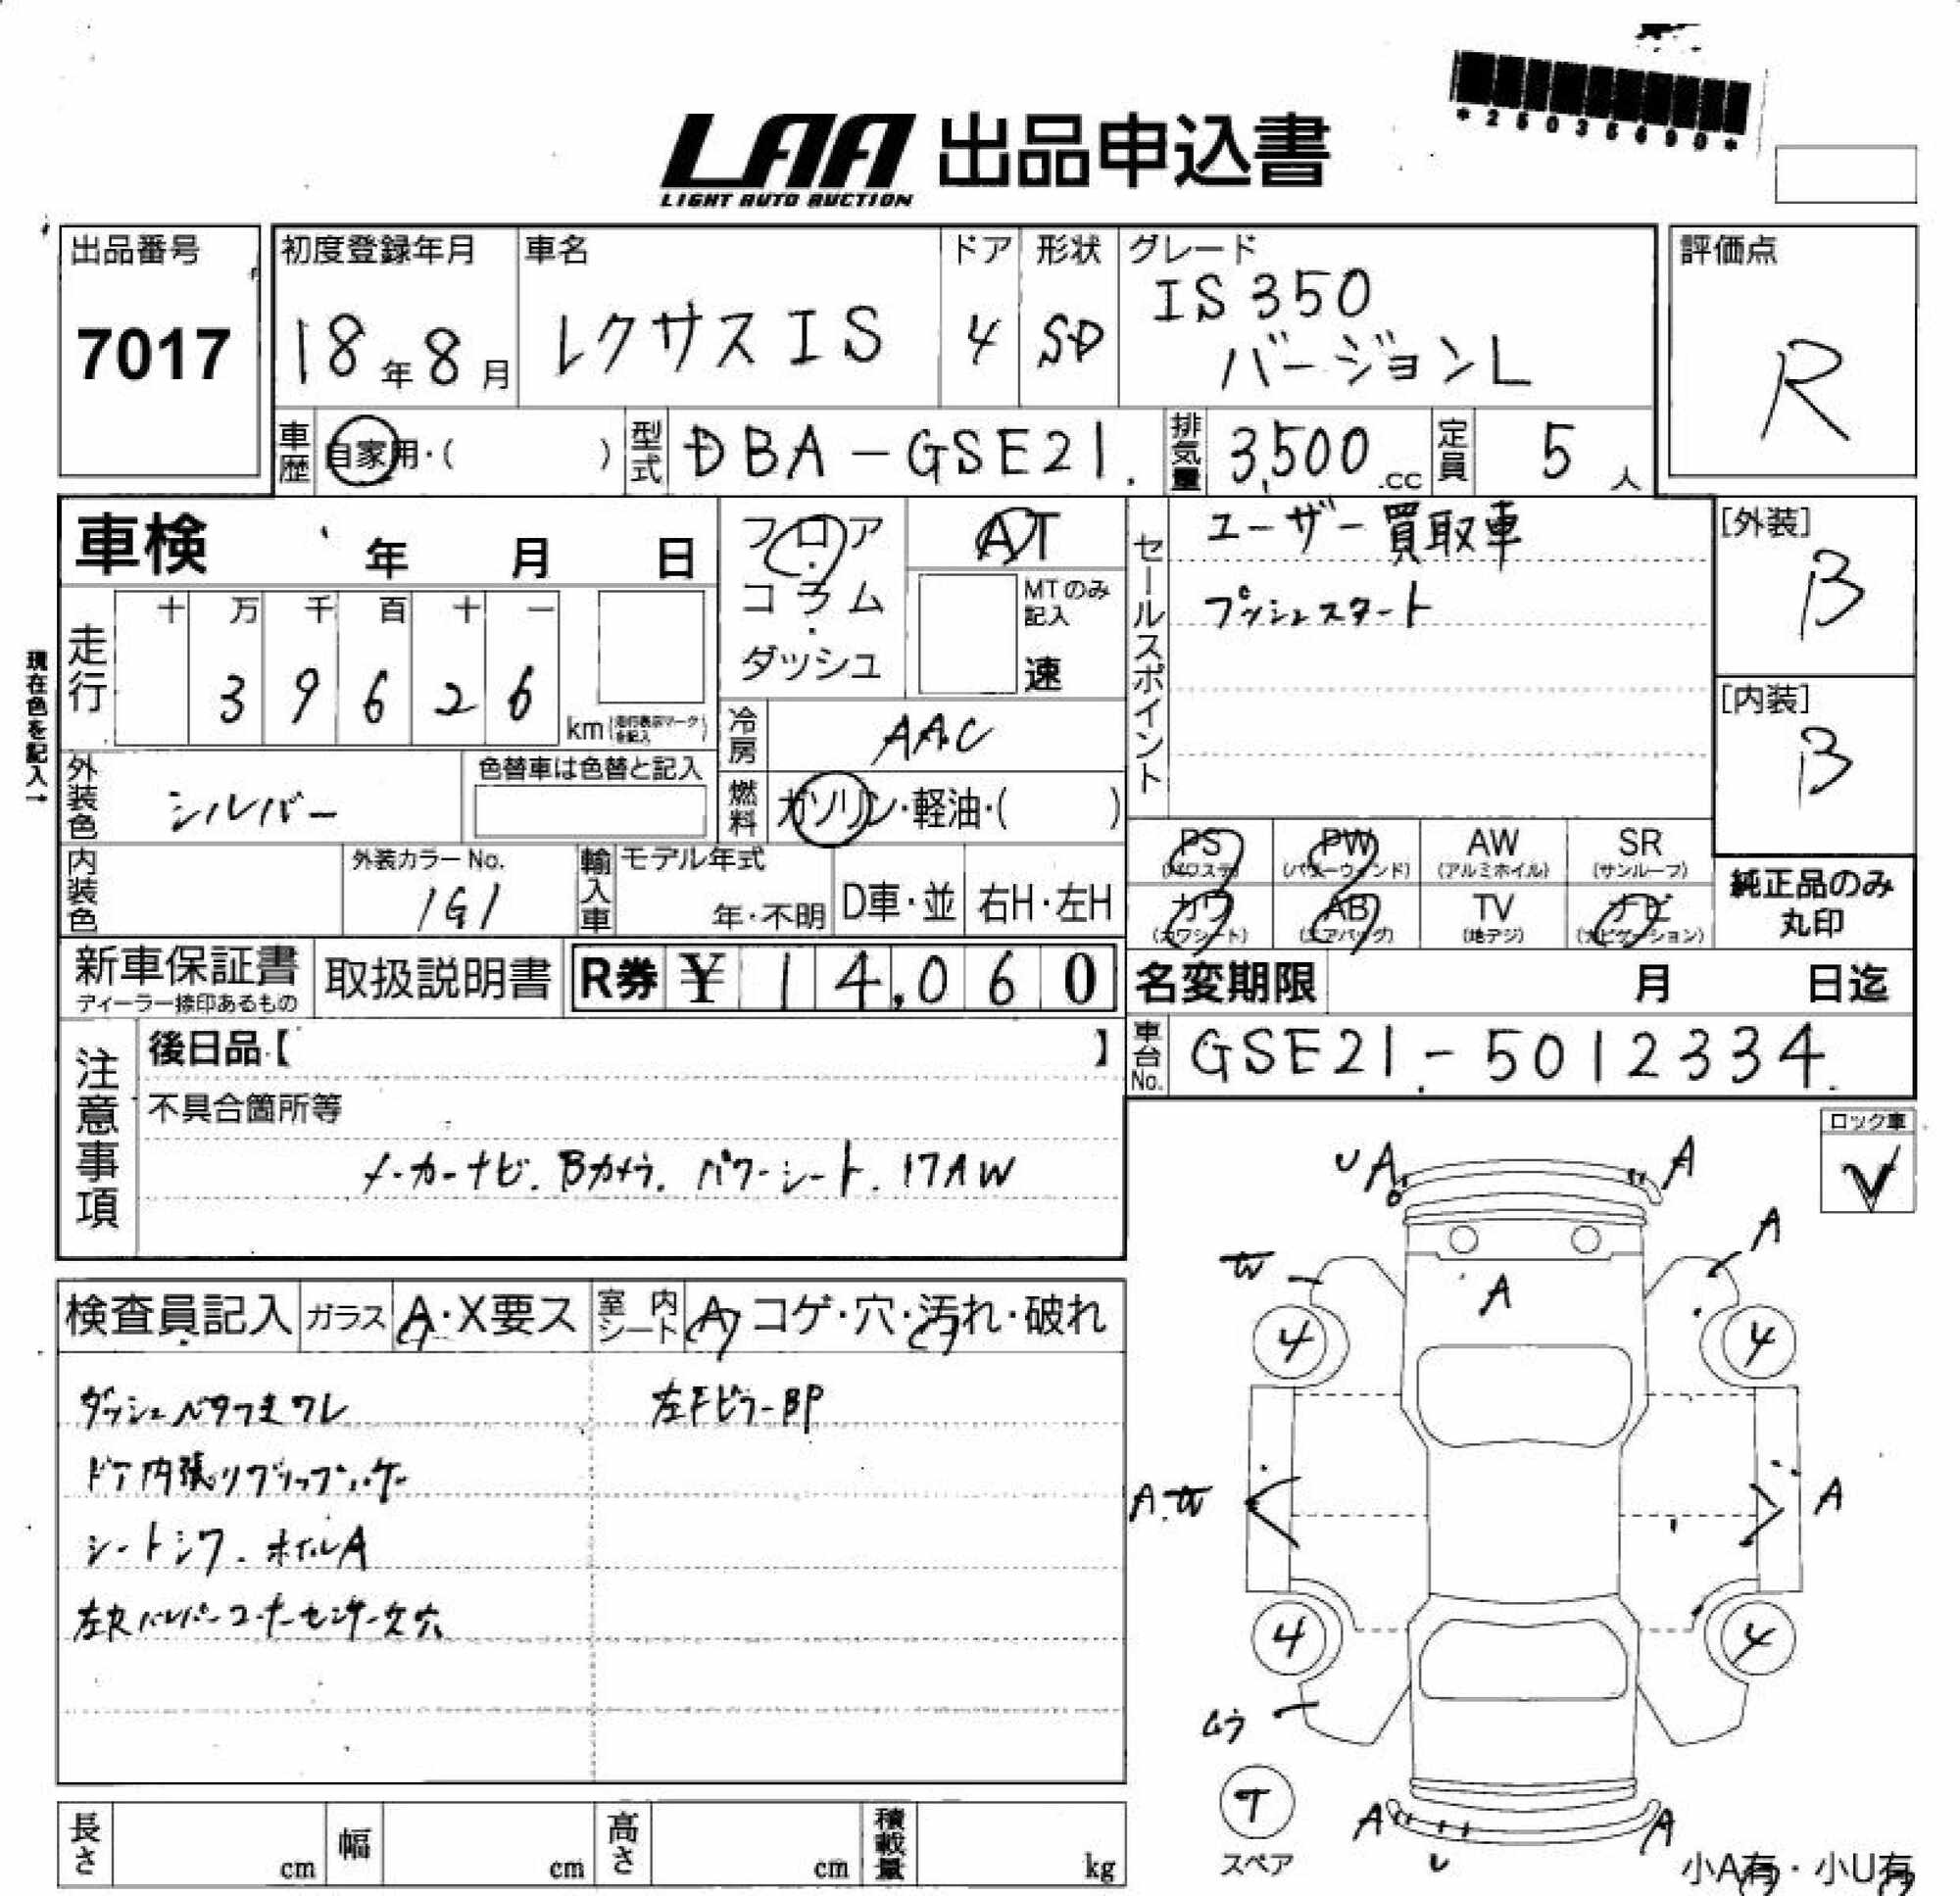 *25035690*
LAA 出品申込書
LIGHT AUTO AUCTION
出品番号
7017
初度登録年月
18年8月
車名
レクサスIS
ドア
4
形状
SD
グレード
IS350
バージョンL
評価点
R
車歴 自家用・( )
型式 DBA-GSE21
排気量 3,500.cc
定員 5人
車検 年 月 日
フロア・コラム・ダッシュ
AT
MTのみ記入
速
セールスポイント
ユーザー買取車
プッシュスタート
[外装]
B
[内装]
B
現在色を記入→
走行
十 万 千 百 十 一
3 9 6 2 6 km(走行表示マークを記入)
冷房 AAC
燃料 ガソリン・軽油・( )
外装色 シルバー
色替車は色替と記入
内装色
外装カラーNo.
1G1
輸入車
モデル年式
年・不明
D車・並
右H・左H
PS (パワステ)
PW (パワーウィンド)
AW (アルミホイル)
SR (サンルーフ)
カワ (カワシート)
AB (エアバッグ)
TV (地デジ)
ナビ (ナビゲーション)
純正品のみ
丸印
新車保証書
ディーラー捺印あるもの
取扱説明書
R券 ¥14,060
名変期限 月 日迄
車台No. GSE21-5012334
注意事項
後日品【 】
不具合箇所等
メーカーナビ.Bカメラ.パワーシート.17AW
ロック車
検査員記入
ガラス A・X要ス
室内シート A コゲ・穴・汚れ・破れ
ダッシュベタつきワレ
左FピラーBP
ドア内張りグリップハゲ
シートシワ.ホイルA
コーナーセンサー欠穴
UA
A
W
A
A
4
4
A.W
A
4
4
T
スペア
A
A
U
小A有・小U有
長さ cm
幅 cm
高さ cm
積載量 kg